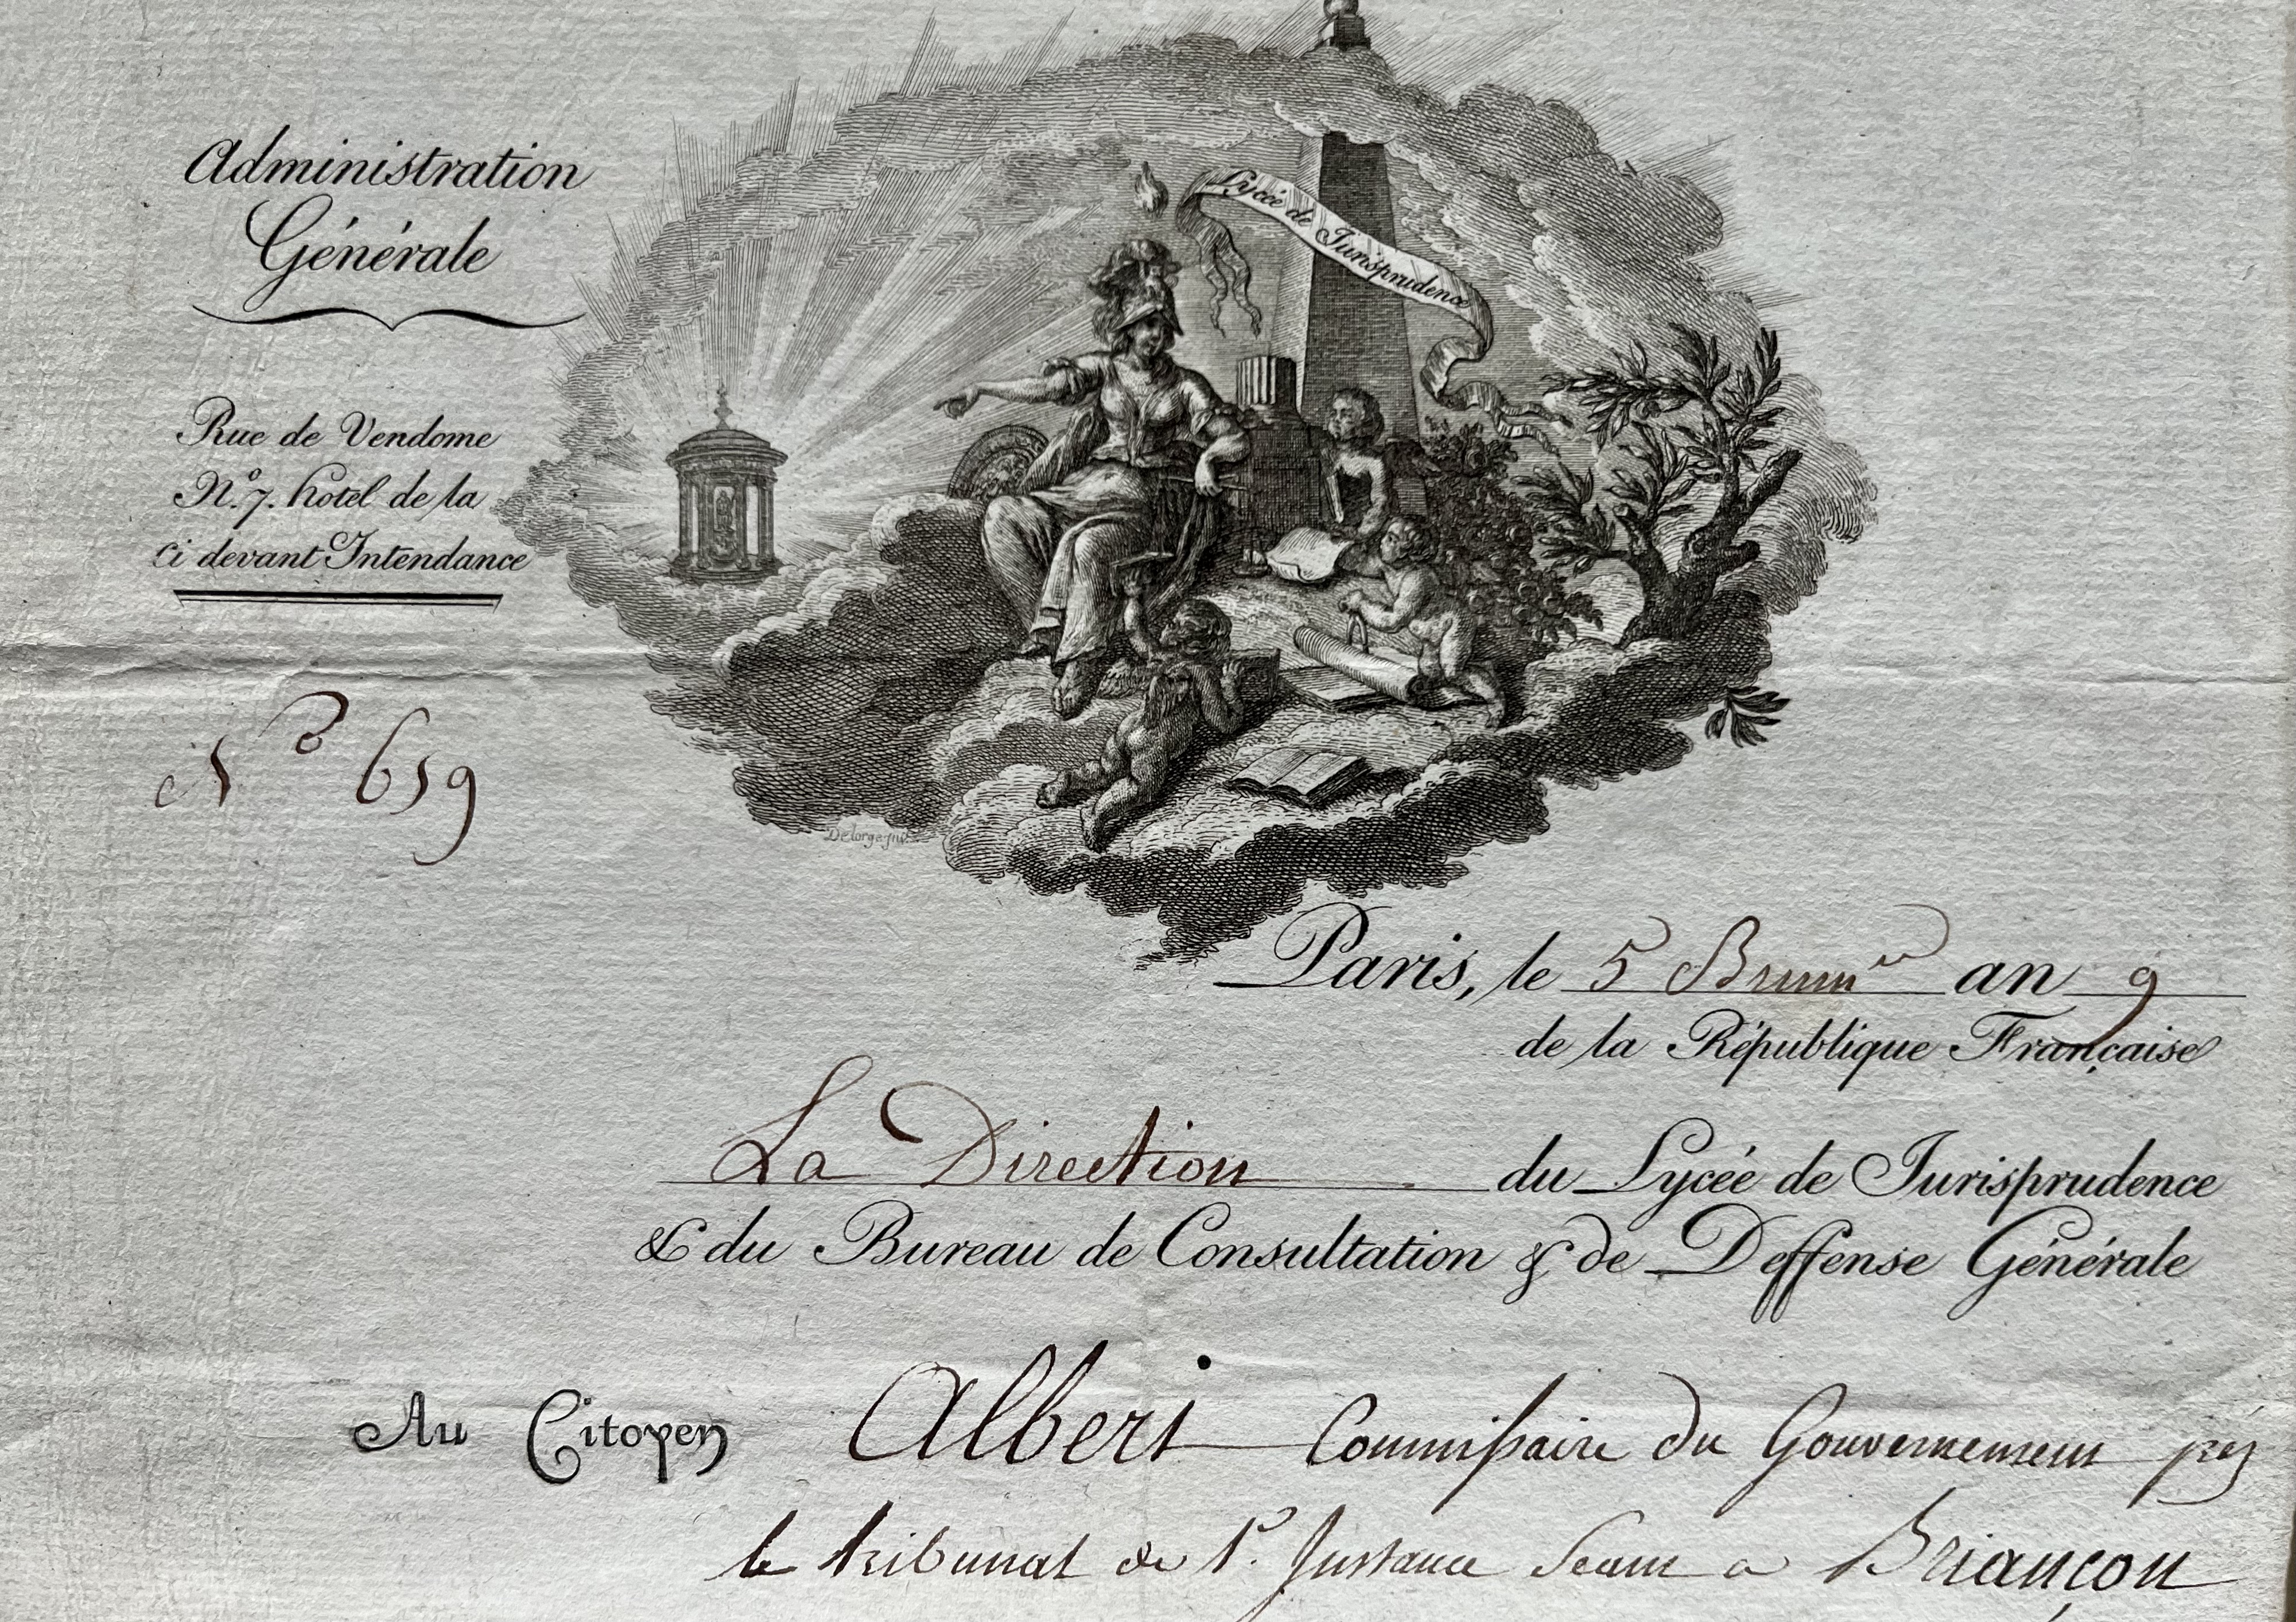 Administration
Générale
Lycée de Jurisprudence
Rue de Vendome
N.º 7. hotel de la
ci devant Intendance
Nº 659
Delorge inv.
Paris, le 5 Brum.re an 9
de la République Française
La Direction du Lycée de Jurisprudence
& du Bureau de Consultation & de Deffense Générale
Au Citoyen Albert Commissaire du Gouvernement près
le tribunal de 1.e Instance Seant a Briançon